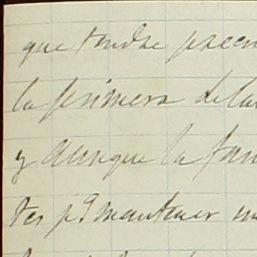 que tendré preen
la primera de la
y aunque la fam
tes pª mantener un